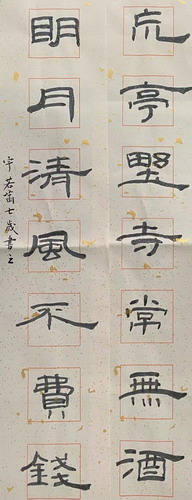 亭墅寺常無酒
明月清風不費錢
若笛七歲書之